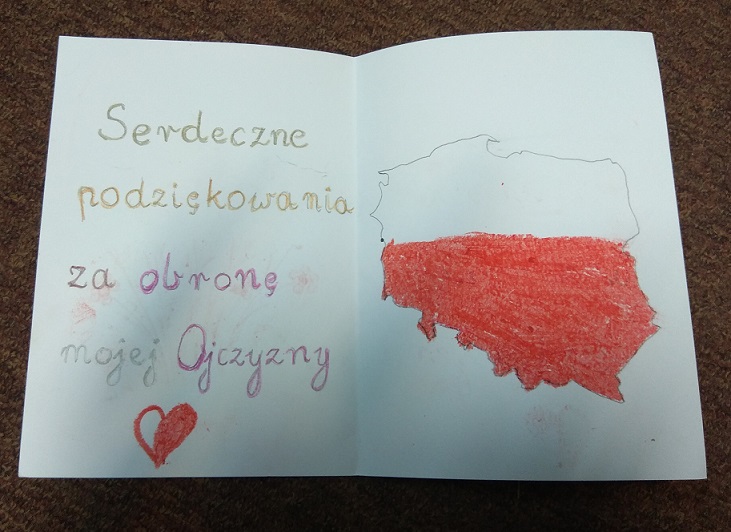 Serdeczne
podziękowania
za obronę
mojej Ojczyzny